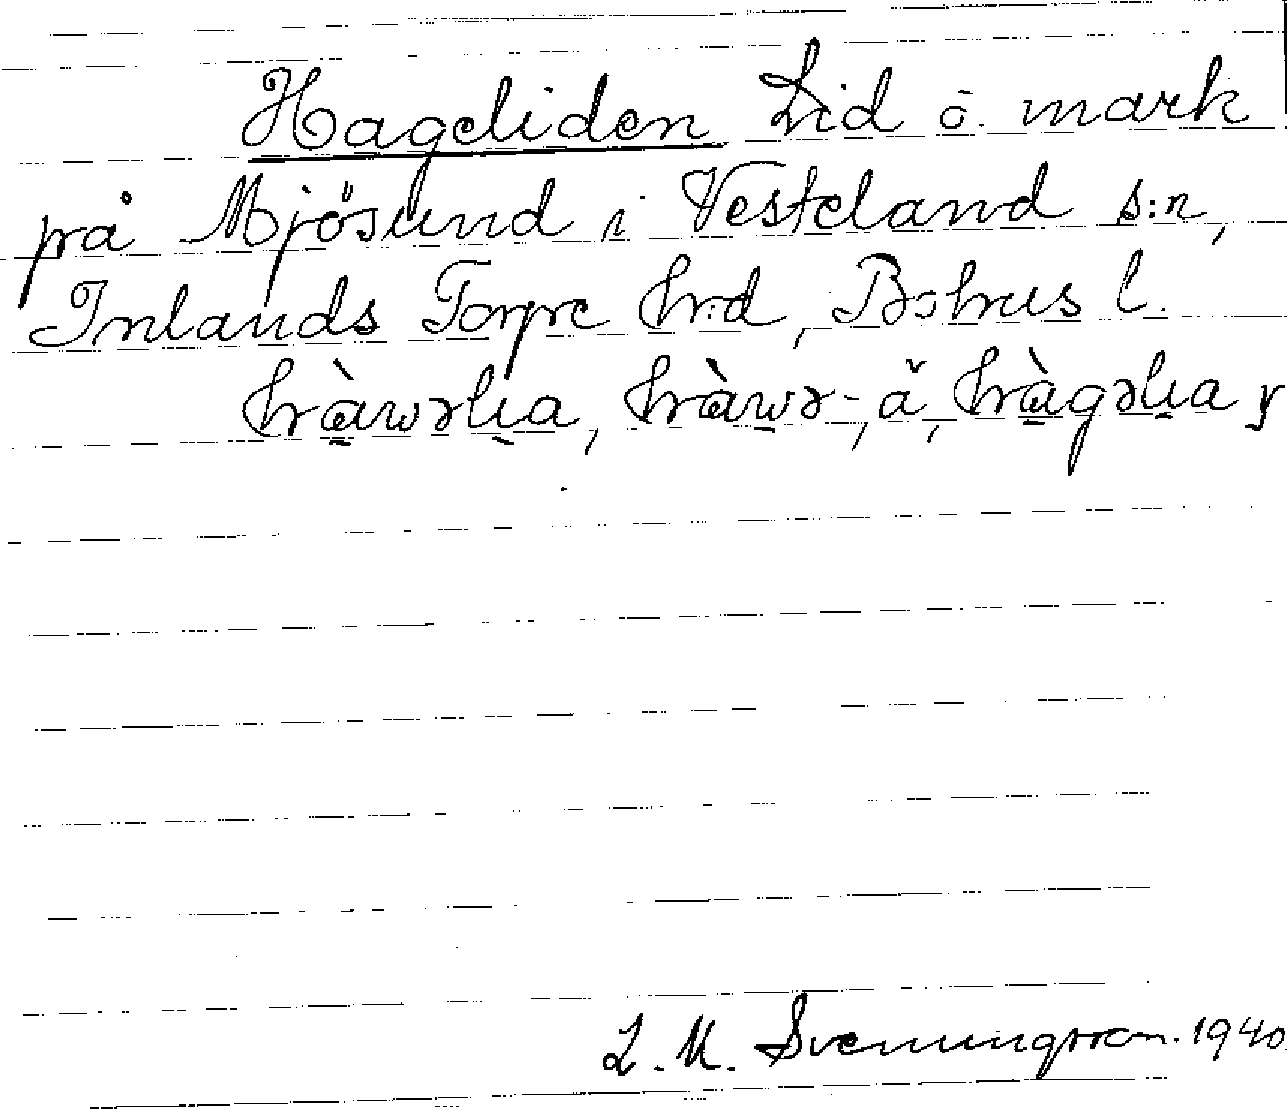 Hageliden Lid o. mark
på Mjösund i Vesteland s:n,
Inlands Torpe hrd, Bohus l.
hàwəlia, hàwə-, ä, hàgəlia y
L. M. Svenungsson. 1940